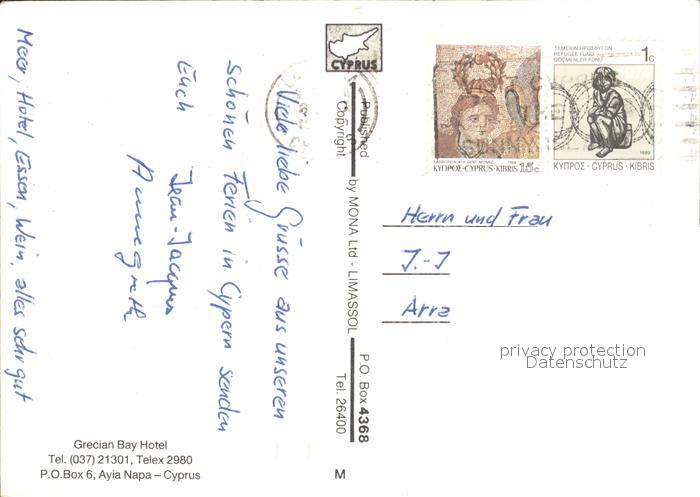 Viele liebe Grüsse aus unseren
schönen Ferien in Cypern senden
Euch
Jean-Jacques
Annegreth
Meer, Hotel, Essen, Wein, alles sehr gut
Grecian Bay Hotel
Tel. (037) 21301, Telex 2980
P.O.Box 6, Ayia Napa – Cyprus
CYPRUS
Published
Copyright
by MONA Ltd - LIMASSOL
P.O. Box 4368
Tel. 26400
M
ΚΥΠΡΟΣ·CYPRUS·KIBRIS 15c
ΤΑΜΕΙΟΝ ΠΡΟΣΦΥΓΩΝ
REFUGEE FUND
GÖÇMENLER FONU
1c
1989
ΚΥΠΡΟΣ - CYPRUS - KIBRIS
SUNNY
Herrn und Frau
J.-J
Arra
privacy protection
Datenschutz